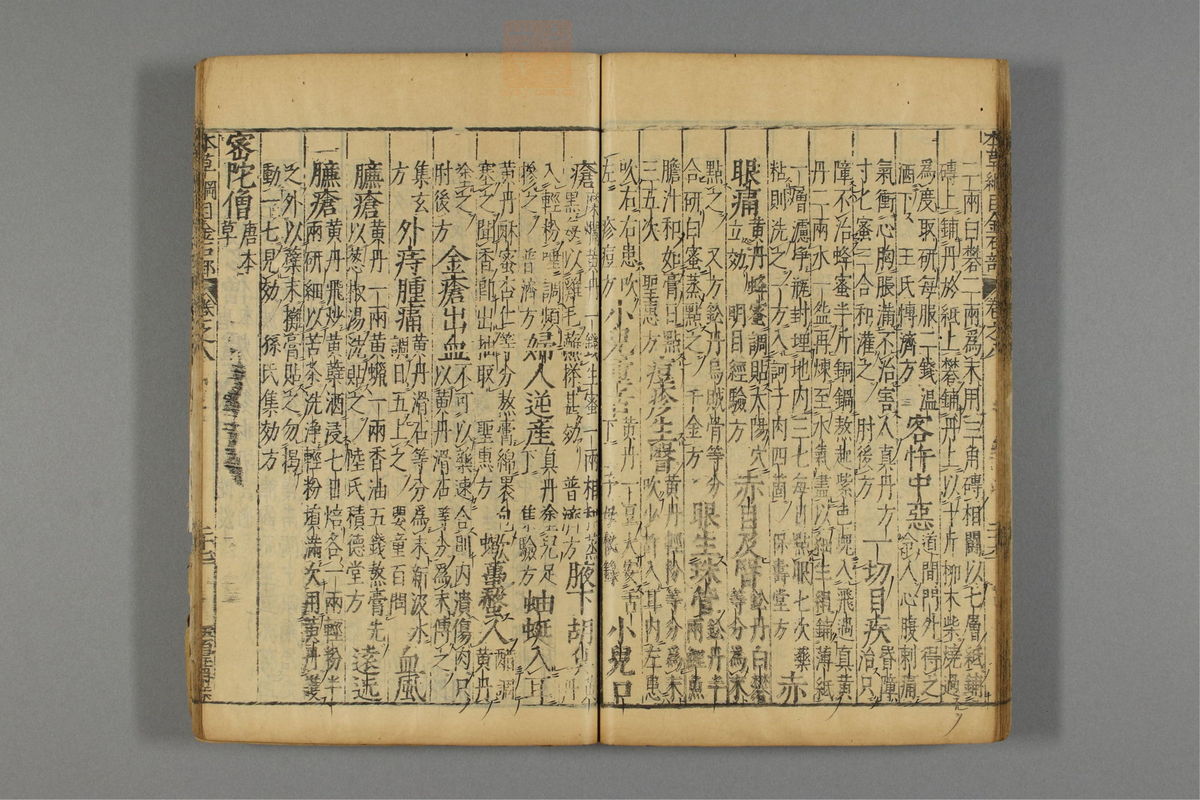 本草綱目金石部 卷之八
二兩白礬一兩爲末用三角磚相鬬以七層紙鋪
磚上鋪丹於紙上礬鋪丹上以十斤柳木柴燒過
爲度取研每服二錢溫酒下 王氏博濟方 客忤中惡 道間門外得之令人心腹刺痛
氣衝心胸脹滿不治害人真丹方寸匕蜜三合和灌之 肘後方 一切目疾 昏障治只
障不治蜂蜜半斤銅鍋熬起紫色塊入飛過真黃
丹二兩水一盌再煉至水氣盡以細生絹鋪薄紙
一層濾淨瓶封埋地內三七每日點眼七次藥粘則洗之一方入訶子肉四箇 保壽堂方 赤
眼痛 黃丹蜂蜜調貼太陽穴立効 明目經驗方 赤目及瞖 鉛丹白礬等分爲末
點之 又方鉛丹烏賊骨等分合研白蜜蒸點之 千金方 眼生珠管 鉛丹半兩鯉魚
膽汁和如膏日點三五次 聖惠方 痘疹生瞖 黃丹輕粉等分爲末吹少許入耳內左患
吹右右患吹左 疹痘方 小兒重舌 黃丹一豆大安舌下 子母秘錄 小兒口
瘡 糜爛黃丹一錢生蜜一兩相和蒸黑每以雞毛蘸搽甚効 普濟方 腋下胡臭 黃丹
入輕粉唾調頻摻之 普濟方 婦人逆產 真丹塗兒足下 集驗方 蚰蜒入耳
黃丹酥蜜杏仁等分熬膏綿裹包塞之聞香即出抽取 聖惠方 蝎蠆螫人 醋調黃丹
塗之 肘後方 金瘡出血 不可以藥速合則內潰傷肉只以黃丹滑石等分爲末傅之
集玄方 外痔腫痛 黃丹滑石等分爲末新汲水調日五上之 嬰童百問 血風
臁瘡 黃丹一兩黃蠟一兩香油五錢熬膏先以葱椒湯洗貼之 陸氏積德堂方 遠近
臁瘡 黃丹飛炒黃蘗酒浸七日焙各一兩輕粉半兩研細以苦茶洗淨輕粉填滿次用黃丹護
之外以蘗末攤膏貼之勿揭動一七見効 孫氏集効方
密陀僧 唐本草
本草綱目金石部 卷之八